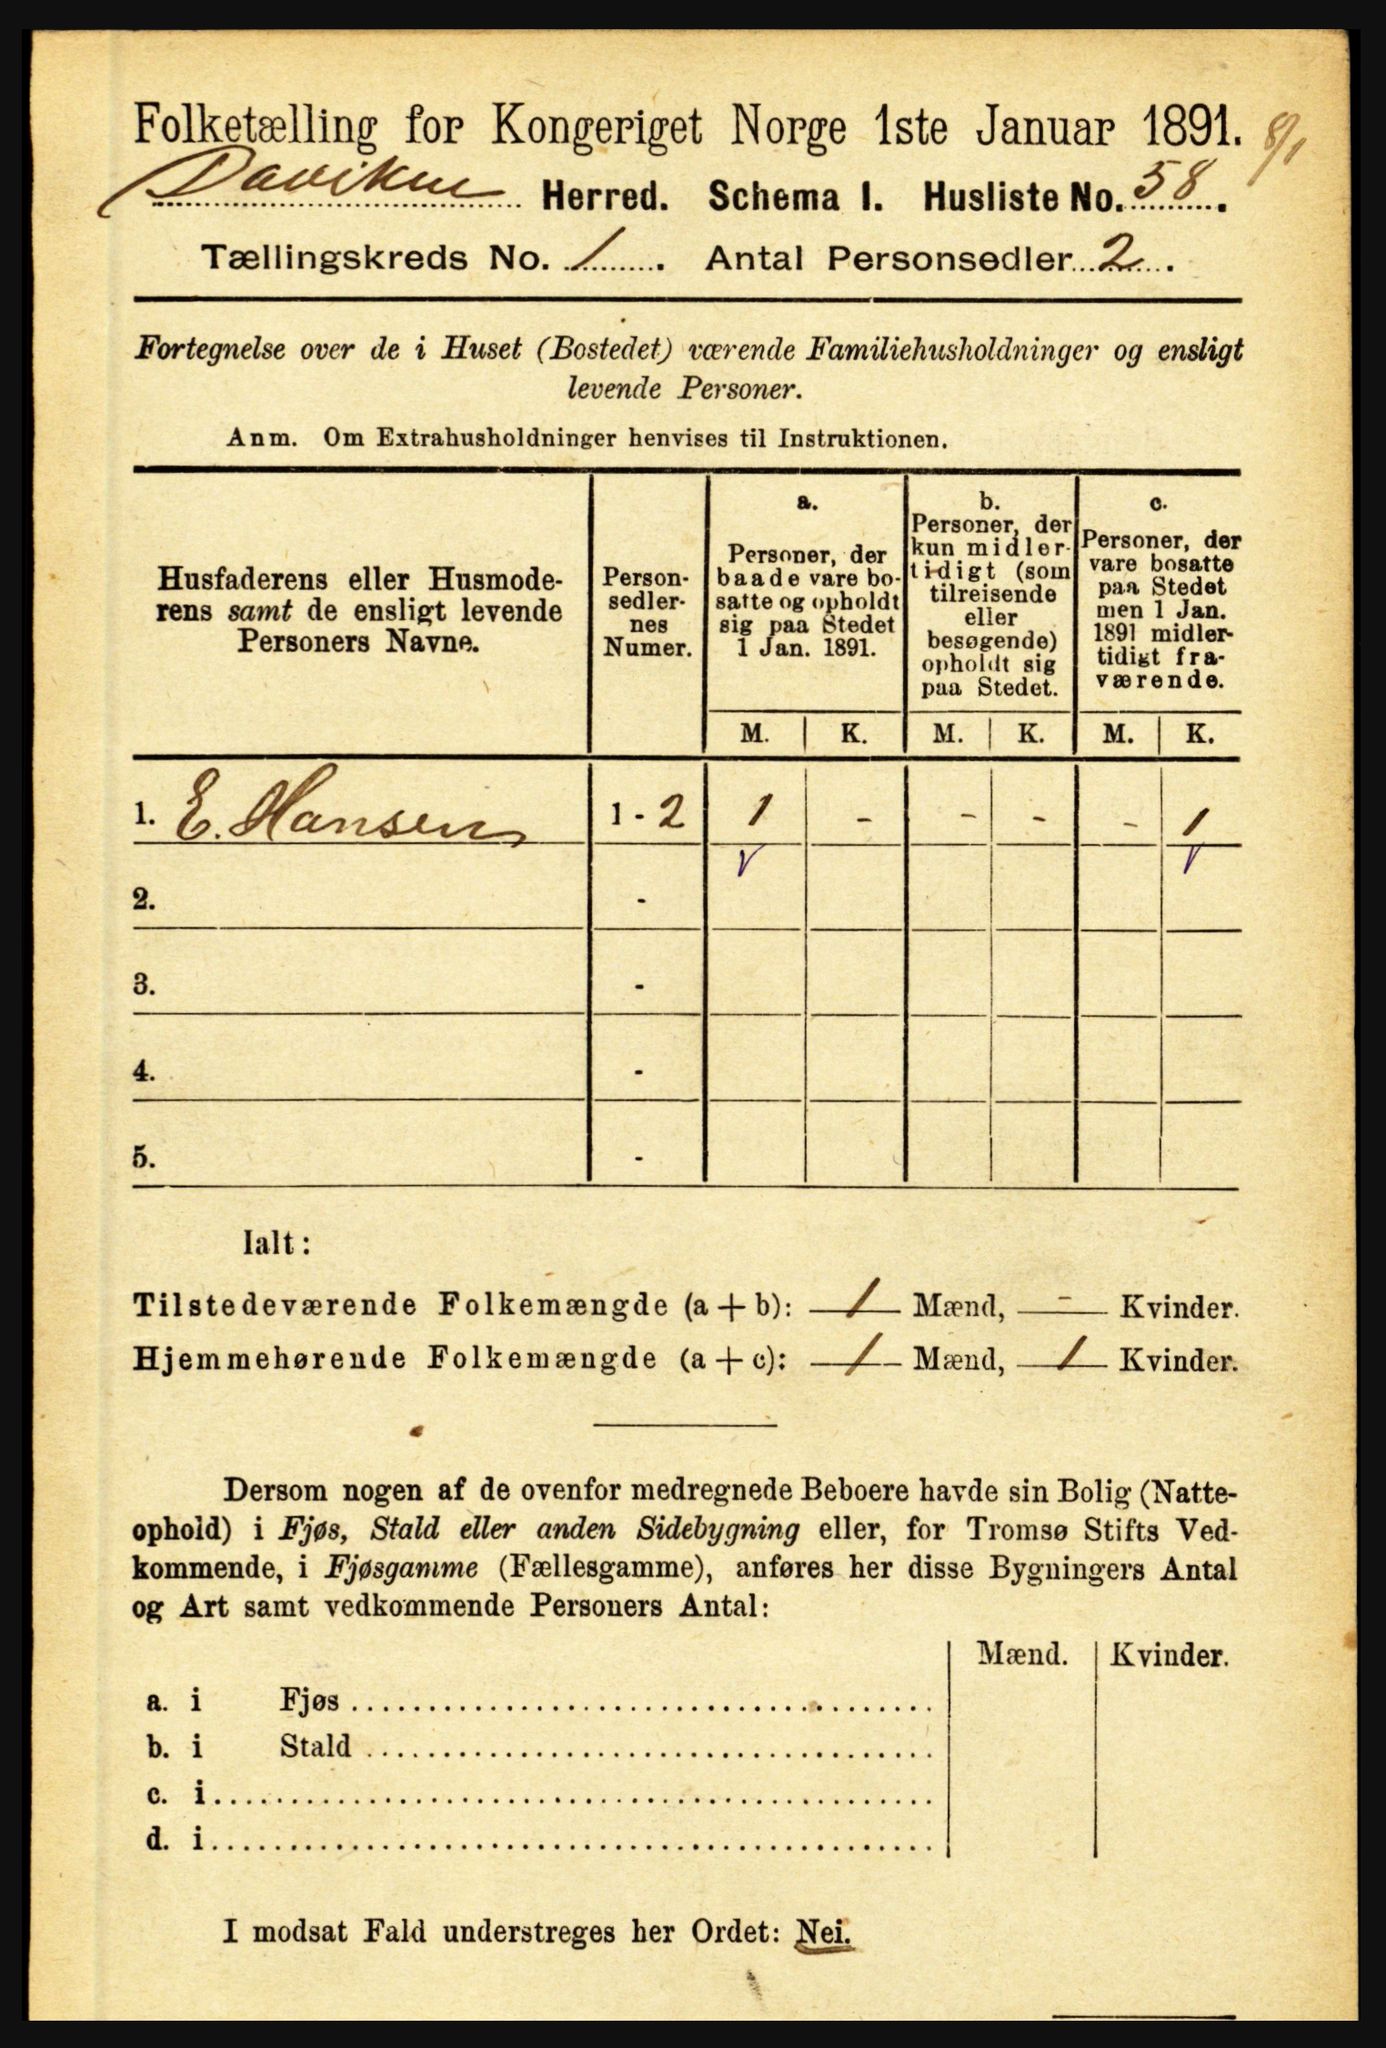 Folketælling for Kongeriget Norge 1ste Januar 1891. 8/1
Daviken Herred. Schema I. Husliste No. 58.
Tællingskreds No. 1. Antal Personsedler 2.
Fortegnelse over de i Huset (Bostedet) værende Familiehusholdninger og ensligt
levende Personer.
Anm. Om Extrahusholdninger henvises til Instruktionen.
Husfaderens eller Husmode-
rens samt de ensligt levende
Personers Navne.
Person-
sedler-
nes
Numer.
a.
Personer, der
baade vare bo-
satte og opholdt
sig paa Stedet
1 Jan. 1891.
b.
Personer, der
kun midler-
tidigt (som
tilreisende
eller
besøgende)
opholdt sig
paa Stedet.
c.
Personer, der
vare bosatte
paa Stedet
men 1 Jan.
1891 midler-
tidigt fra-
værende.
M. K. M. K. M. K.
1. E. Hansen 1 - 2 1 - - - - 1
2. -
3. -
4. -
5. -
Ialt:
Tilstedeværende Folkemængde (a + b): 1 Mænd, - Kvinder.
Hjemmehørende Folkemængde (a + c): 1 Mænd, 1 Kvinder.
Dersom nogen af de ovenfor medregnede Beboere havde sin Bolig (Natte-
ophold) i Fjøs, Stald eller anden Sidebygning eller, for Tromsø Stifts Ved-
kommende, i Fjøsgamme (Fællesgamme), anføres her disse Bygningers Antal
og Art samt vedkommende Personers Antal:
Mænd. Kvinder.
a. i Fjøs
b. i Stald
c. i
d. i
I modsat Fald understreges her Ordet: Nei.